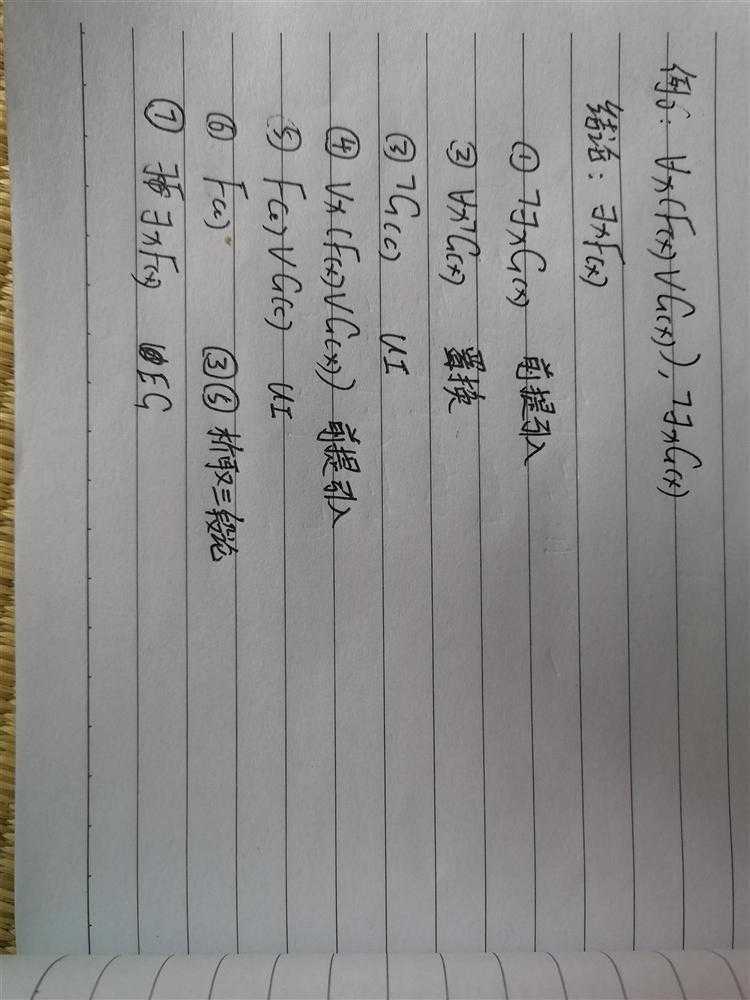 例6: ∀x(F(x)∨G(x)), ¬∃xG(x)
结论: ∃xF(x)
① ¬∃xG(x) 前提引入
② ∀x¬G(x) 置换
③ ¬G(c) UI
④ ∀x(F(x)∨G(x)) 前提引入
⑤ F(c)∨G(c) UI
⑥ F(c) ③⑤ 析取三段论
⑦ ∃xF(x) EG